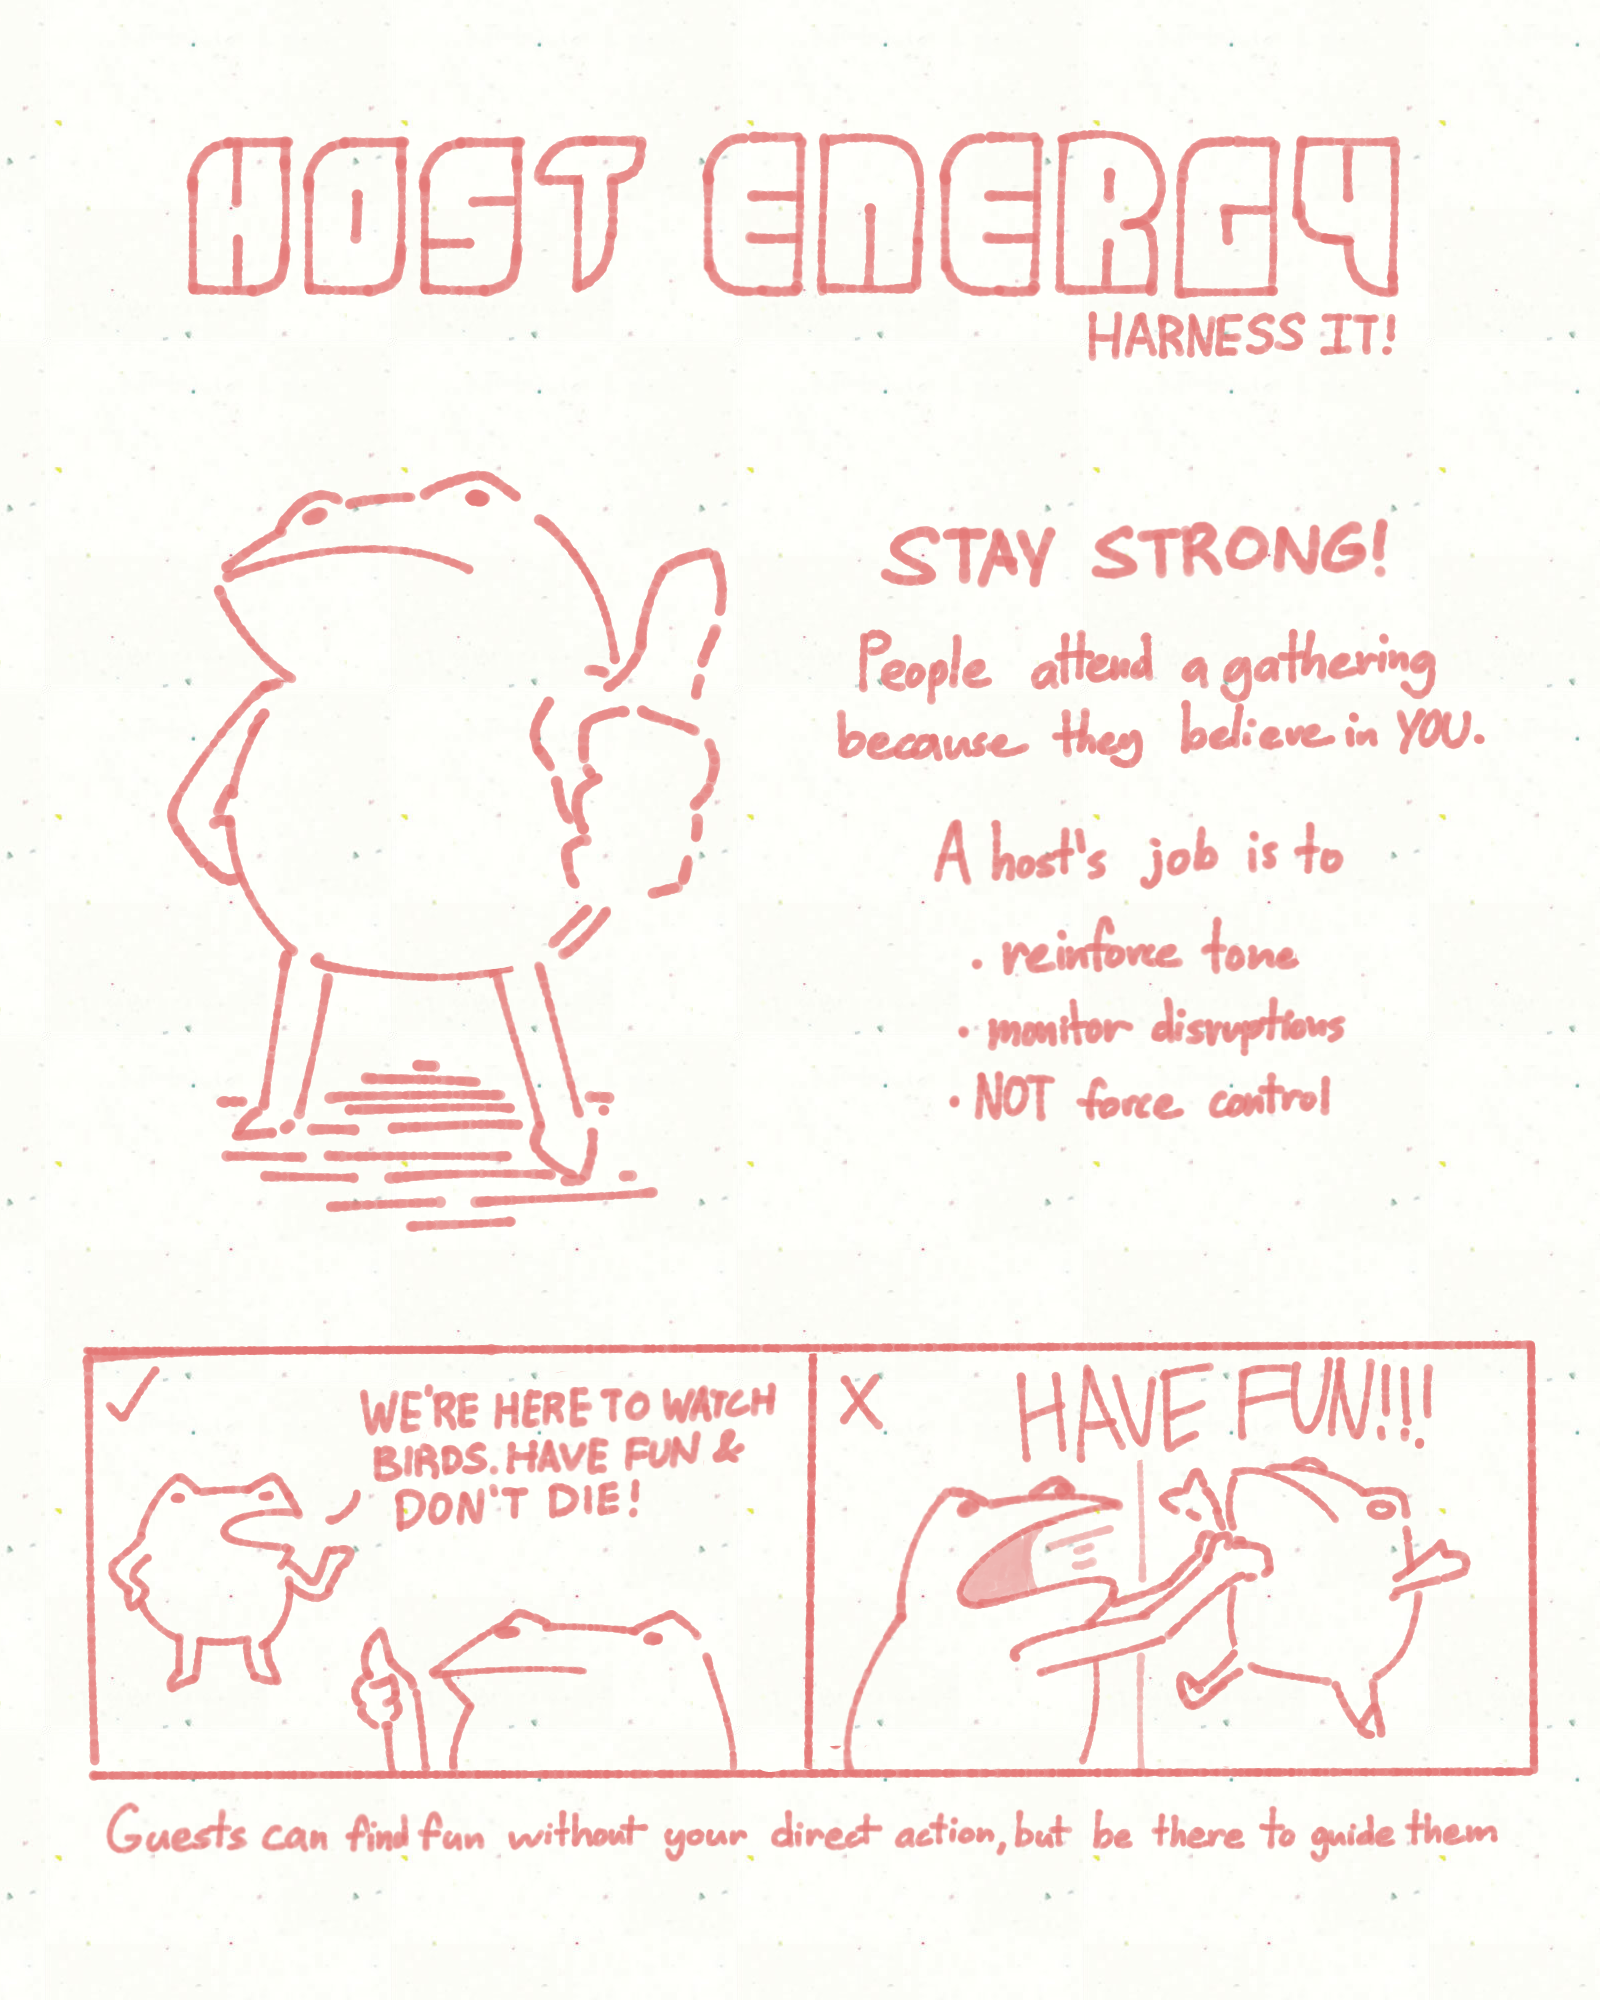 HOST ENERGY
HARNESS IT!
STAY STRONG!
People attend a gathering
because they believe in YOU.
A host's job is to
• reinforce tone
• monitor disruptions
• NOT force control
WE'RE HERE TO WATCH
BIRDS. HAVE FUN &
DON'T DIE!
X
HAVE FUN!!!
Guests can find fun without your direct action, but be there to guide them